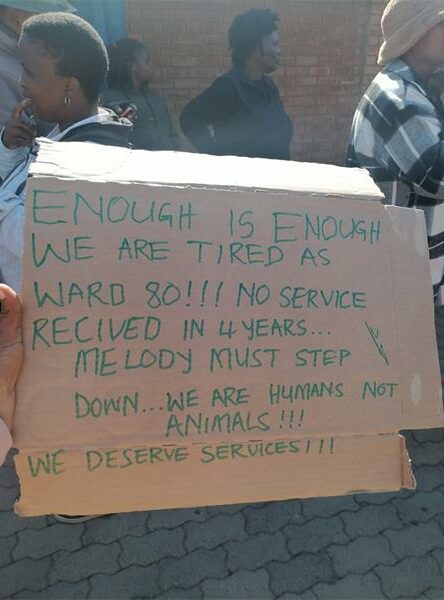 ENOUGH IS ENOUGH
WE ARE TIRED AS
WARD 80!!! NO SERVICE
RECIVED IN 4 YEARS...
MELODY MUST STEP
DOWN...WE ARE HUMANS NOT
ANIMALS!!!
WE DESERVE SERVICES!!!